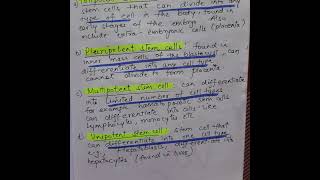 stem cells that can divide into any
type of cell in the body. found in
early stages of the embryo. Also
include extra-embryonic cells (placenta)
b) Pluripotent stem cells: found in
inner mass cells of the blastocyst, can
differentiate into any cell type
cannot divide to form placenta.
c) Multipotent stem cell - can differentiate
into limited number of cell types
for example hematopoietic stem cells
can differentiate into cells like
lymphocytes, monocytes etc
d. Unipotent stem cell: stem cell that
can differentiate into one cell type
e.g. differentiate into
hepatocytes (found in liver)